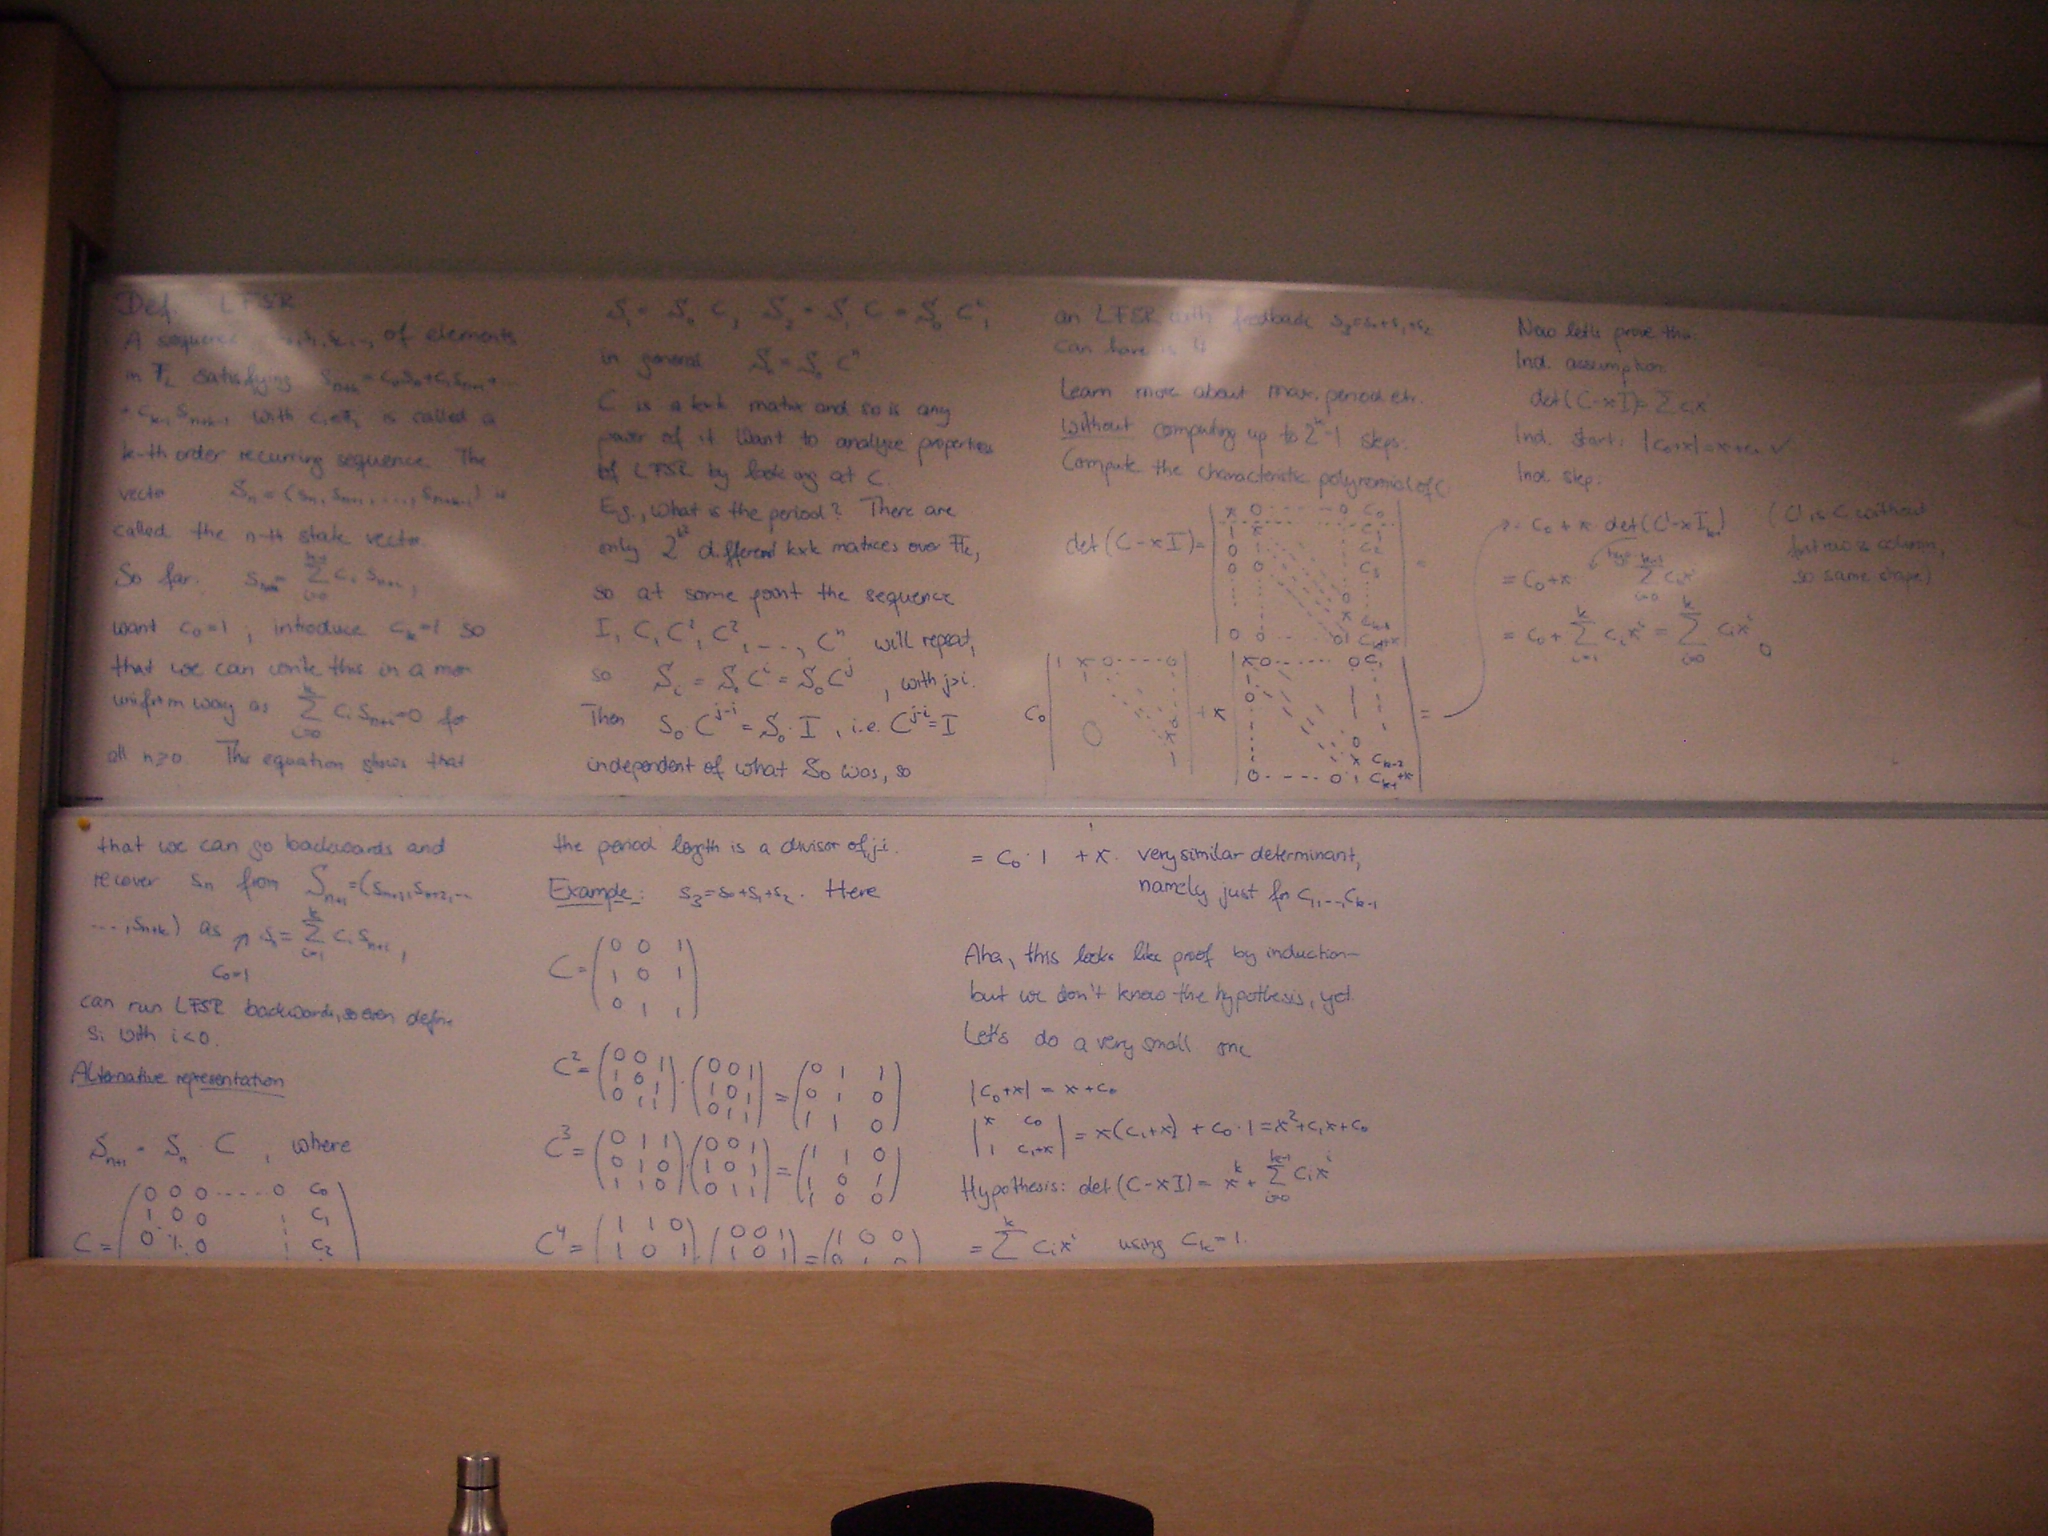 Def. LFSR
A sequence of elements
in F₂ satisfying s_{n+k} = c₀s_n+c₁s_{n+1}+...
+ c_{k-1} s_{n+k-1} with c_i∈F₂ is called a
k-th order recurring sequence. The
vector S_n = (s_n, s_{n+1}, ..., s_{n+k-1}) is
called the n-th state vector.
So far: s_{n+k} = Σ_{i=0}^{k-1} c_i s_{n+i},
want c₀=1, introduce c_k=1 so
that we can write this in a more
uniform way as Σ_{i=0}^{k} c_i s_{n+i}=0 for
all n≥0. The equation shows that
that we can go backwards and
recover s_n from S_{n+1}=(s_{n+1}, s_{n+2}, ...
..., s_{n+k}) as s_n = Σ_{i=1}^{k} c_i s_{n+i},
c₀=1
can run LFSR backwards, so even define
s_i with i<0.
Alternative representation
S_{n+1} = S_n · C, where
C = ( 0 0 0 ..... 0 c₀
1 0 0 c₁
0 1 0 c₂
S₁ = S₀ C, S₂ = S₁ C = S₀ C²,
in general S_n = S₀ Cⁿ
C is a k×k matrix and so is any
power of it. Want to analyze properties
of LFSR by looking at C.
E.g., what is the period? There are
only 2^{k²} different k×k matrices over F₂,
so at some point the sequence
I, C, C², C³, ..., Cⁿ will repeat,
so S_i = S₀ C^i = S₀ C^j, with j>i.
Then S₀ C^{j-i} = S₀ · I, i.e. C^{j-i} = I
independent of what S₀ was, so
the period length is a divisor of j-i.
Example: s₃=s₀+s₁+s₂. Here
C = (0 0 1
1 0 1
0 1 1)
C² = (0 0 1 / 1 0 1 / 0 1 1) · (0 0 1 / 1 0 1 / 0 1 1) = (0 1 1 / 0 1 0 / 1 1 0)
C³ = (0 1 1 / 0 1 0 / 1 1 0) · (0 0 1 / 1 0 1 / 0 1 1) = (1 1 0 / 1 0 1 / 1 0 0)
C⁴ = (1 1 0 / 1 0 1 · (0 0 1 / 1 0 1 = (1 0 0
an LFSR with feedback s₃=s₀+s₁+s₂
can have is 4
Learn more about max. period etc.
without computing up to 2^k-1 steps.
Compute the characteristic polynomial of C
det(C-xI) = | x 0 ...... 0 c₀
1 x c₁
0 1 c₂
0 0 c₃
0
x c_{k-2}
0 0 ..... 0 1 c_{k-1}+x | =
c₀ | 1 x 0 ---- 0
1
0 x
1 | + x | x 0 ...... 0 c₁
1
0
0
x c_{k-2}
0 ---- 0 1 c_{k-1}+x | =
= c₀ · 1 + x · very similar determinant,
namely just for c₁, ..., c_{k-1}
Aha, this looks like proof by induction
but we don't know the hypothesis, yet.
Let's do a very small one
|c₀+x| = x+c₀
| x c₀ / 1 c₁+x | = x(c₁+x) + c₀·1 = x²+c₁x+c₀
Hypothesis: det(C-xI) = x^k + Σ_{i=0}^{k-1} c_i x^i
= Σ^{k} c_i x^i using c_k=1.
Now let's prove this
Ind. assumption:
det(C-xI) = Σ c_i x
Ind. start: |c₀+x| = x+c₀ ✓
Ind. step:
= c₀ + x · det(C'-xI_{k-1}) (C' is C without
first row & column,
so same shape)
= c₀+x Σ_{i=0}^{k-1} c_i x^i
= c₀ + Σ_{i=1}^{k} c_i x^i = Σ_{i=0}^{k} c_i x^i